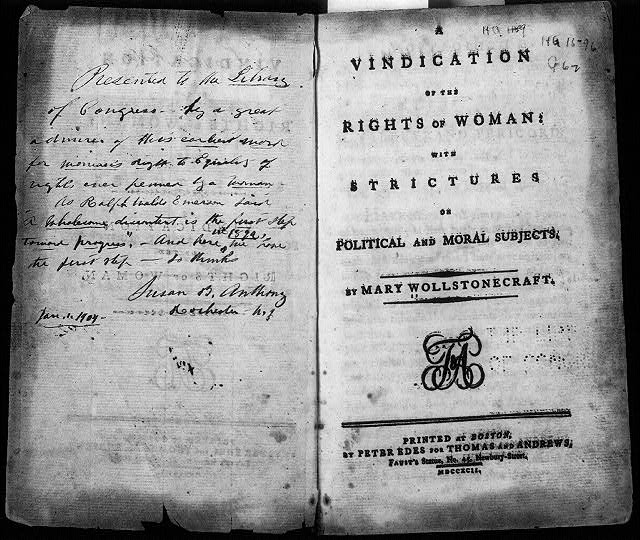 Presented to the Library
of Congress by a great
admirer of this earliest work
for woman's right to Equality of
rights ever penned by a woman
As Ralph Waldo Emerson said
"A Wholesome discontent is the first step
toward progress". - And here, in 1892, we have
the first step - so thinks
Susan B. Anthony
Jan. 1. 1904 - Rochester - N.Y
HQ 1596
G62
A
VINDICATION
OF THE
RIGHTS OF WOMAN:
WITH
STRICTURES
ON
POLITICAL AND MORAL SUBJECTS,
BY MARY WOLLSTONECRAFT.
T&A
PRINTED AT BOSTON,
BY PETER EDES FOR THOMAS AND ANDREWS,
FAUST'S Statue, No. 45, Newbury-Street,
MDCCXCII.